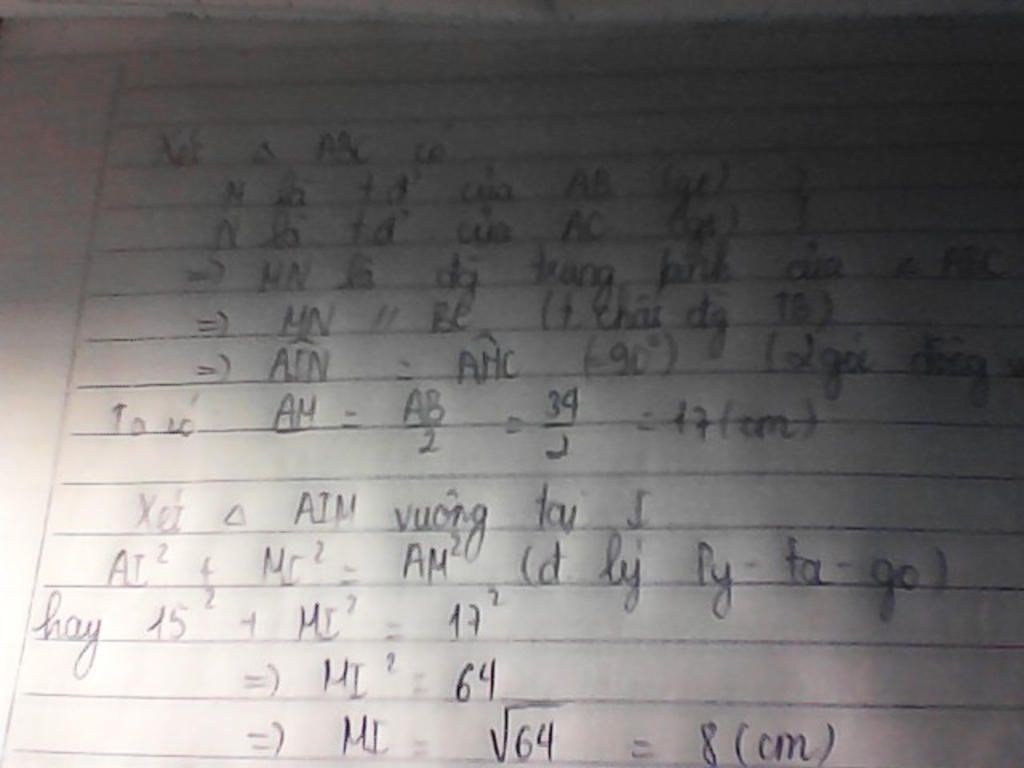 Xét △ ABC có
M là tđ' của AB (gt) }
N là tđ' của AC (gt) }
=> MN là đg trung bình của △ ABC
=> MN // BC (t chất đg TB)
=> AIN = AHC (=90°) (2 góc đồng
Ta có AM = AB/2 = 34/2 = 17 (cm)
Xét △ AIM vuông tại I
AI² + MI² = AM² (đ lý Py-ta-go)
hay 15² + MI² = 17²
=> MI² = 64
=> MI = √64 = 8 (cm)